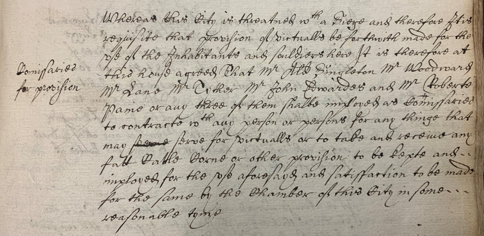 Whereas this City is threatned wth a Siege and therefore it is
requisite that provision of victualls be forthwith made for the
use of the Inhabitants and souldiers here It is therefore at
Comissaries
for provision
this house agreed That Mr Ald Singleton Mr Woodward
Mr Lane Mr Tyler Mr John Edwardes and Mr Roberte
Payne or any three of them shalbe imployed as Comissaries
to contracte wth any person or persons for any thinge that
may serve for victualls or to take and receive any
salt Cattle Corne or other provision to be kepte and
imployed for the use aforesaid and satisfaction to be made
for the same by the Chamber of this City in some
reasonable tyme